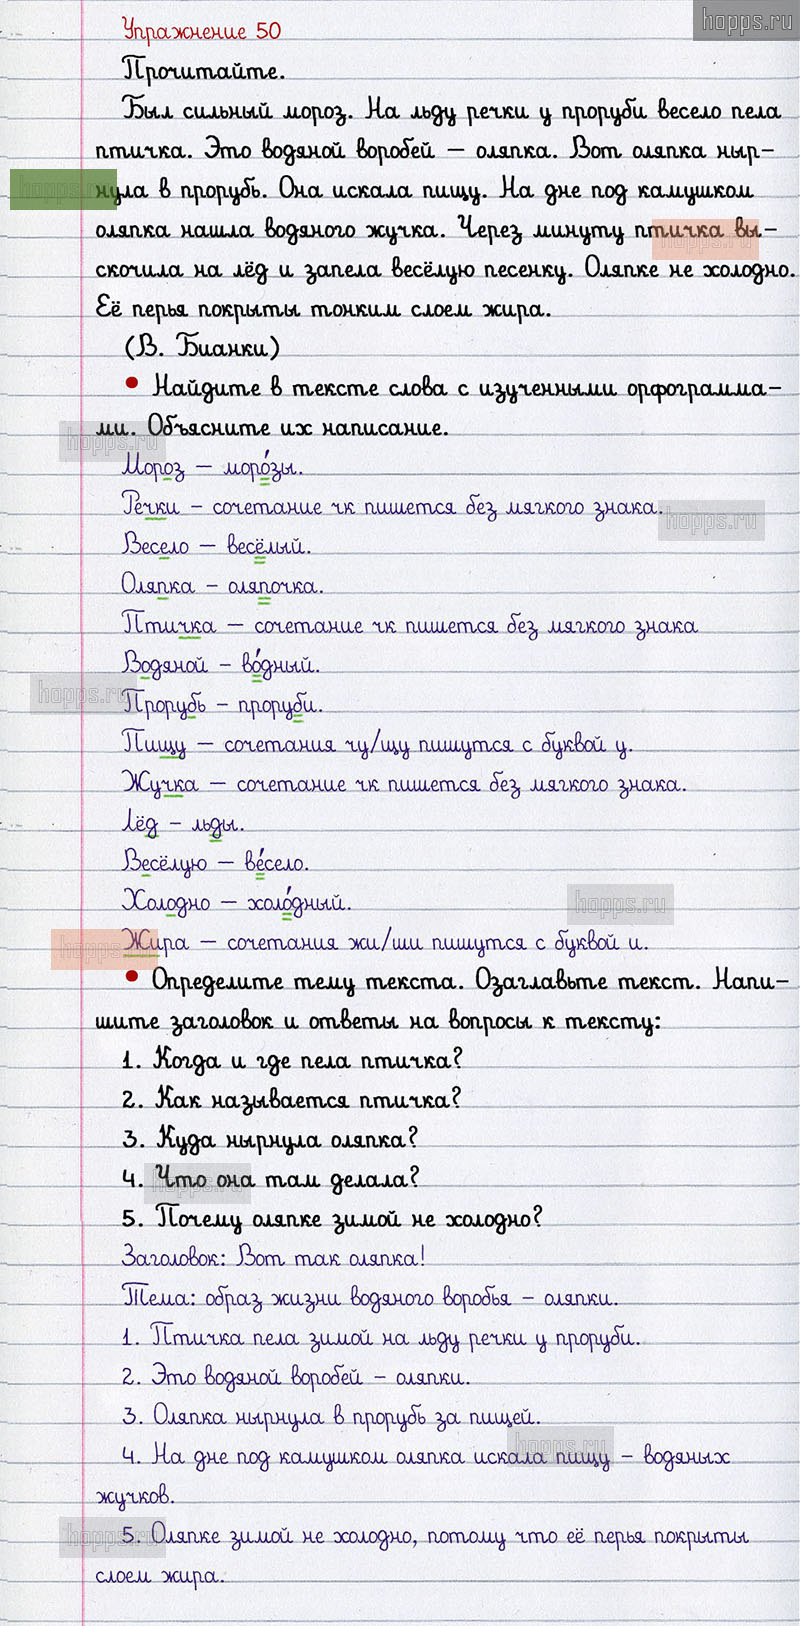 hopps.ru
Упражнение 50
Прочитайте.
Был сильный мороз. На льду речки у проруби весело пела
птичка. Это водяной воробей – оляпка. Вот оляпка ныр-
hopps.ru
нула в прорубь. Она искала пищу. На дне под камушком
оляпка нашла водяного жучка. Через минуту птичка вы-
hopps.ru
скочила на лёд и запела весёлую песенку. Оляпке не холодно.
Её перья покрыты тонким слоем жира.
(В. Бианки)
• Найдите в тексте слова с изученными орфограмма-
ми. Объясните их написание.
hopps.ru
Мороз – моро́зы.
Речки – сочетание чк пишется без мягкого знака.
hopps.ru
Весело – весёлый.
Оляпка – оляпочка.
Птичка – сочетание чк пишется без мягкого знака
Водяной – во́дный.
hopps.ru
Прорубь – проруби.
Пищу – сочетания чу/щу пишутся с буквой у.
Жучка – сочетание чк пишется без мягкого знака.
Лёд – льды.
Весёлую – ве́село.
Холодно – холо́дный.
hopps.ru
Жира – сочетания жи/ши пишутся с буквой и.
hopps.ru
• Определите тему текста. Озаглавьте текст. Напи-
шите заголовок и ответы на вопросы к тексту:
1. Когда и где пела птичка?
2. Как называется птичка?
3. Куда нырнула оляпка?
4. Что она там делала?
hopps.ru
5. Почему оляпке зимой не холодно?
Заголовок: Вот так оляпка!
Тема: образ жизни водяного воробья – оляпки.
1. Птичка пела зимой на льду речки у проруби.
2. Это водяной воробей – оляпки.
3. Оляпка нырнула в прорубь за пищей.
4. На дне под камушком оляпка искала пищу – водяных
hopps.ru
жучков.
5. Оляпке зимой не холодно, потому что её перья покрыты
hopps.ru
слоем жира.